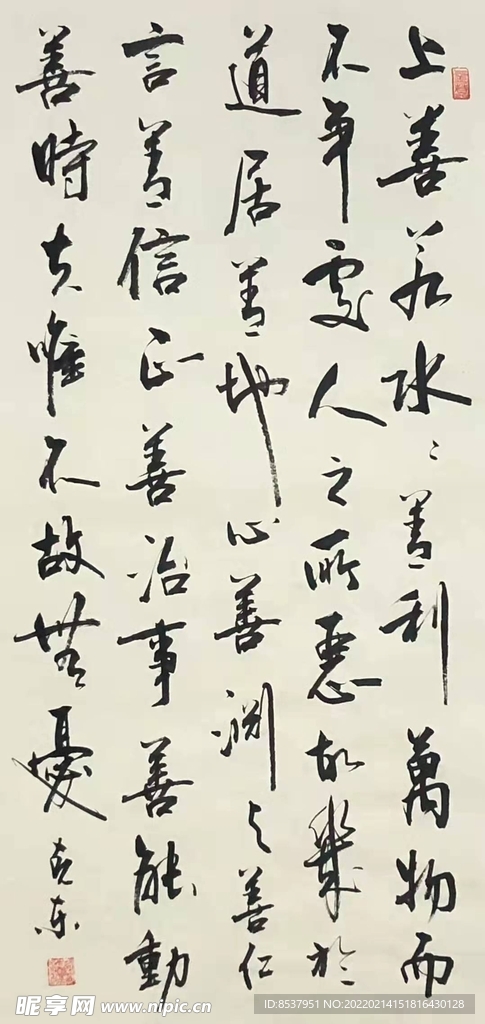 上善若水〻善利萬物而
不争處人之所惡故幾於
道居善地心善渊与善仁
言善信正善治事善能動
善時夫唯不故無憂
克东
昵享网 www.nipic.cn
ID:8537951 NO:20220214151816430128